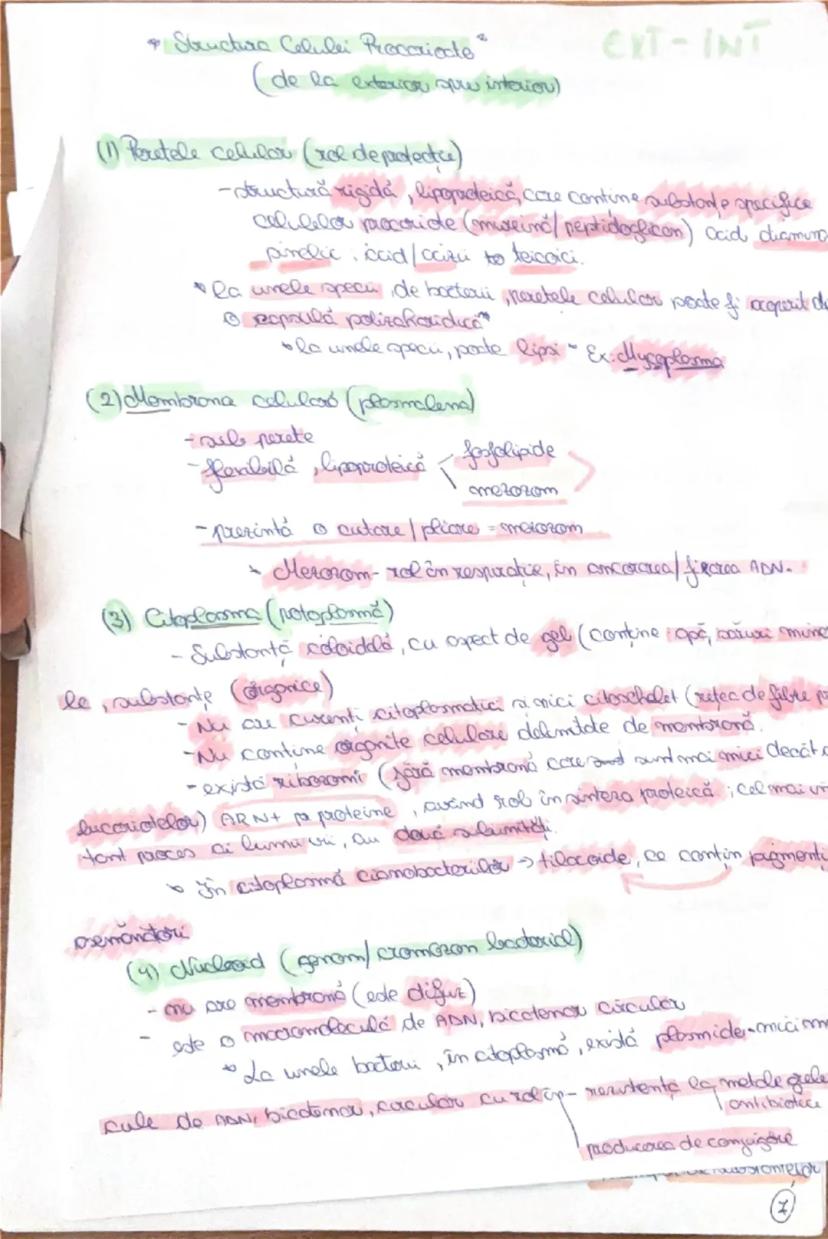 EXT - INT
" Structura Celulei Procariote "
(de la exterior spre interior)
(1) Peretele celular (rol de protecție)
- structură rigidă, lipoproteică, care conține substanțe specifice
celulelor procariote (mureină/peptidoglican) acid diamino
pimelic, acid/acizi teicoici.
* la unele specii, de bacterii, peretele celular poate fi acoperit de
o capsulă polizaharidică"
* la unele specii, poate lipsi - Ex: Mycoplasma
(2) Membrana celulară (plasmalema)
- sub perete
- flexibilă, lipoproteică fosfolipide
mezozom
- prezintă o cutare/pliere = mezozom
* Mezozom - rol în respirație, în ancorarea/fixarea ADN.
(3) Citoplasma (protoplasmă)
- Substanță coloidală, cu aspect de gel (conține: apă, săruri mine
le, substanțe (organice)
- Nu are curenți citoplasmatici și nici citoschelet (rețea de fibre p
- Nu conține organite celulare delimitate de membrană.
- există ribozomi (fără membrană care sunt mai mici decât
eucariotelor) ARN + proteine, având rol în sinteza proteică; cel mai im
tant proces al lumii vii, au două subunități.
* în citoplasma cianobacteriilor → tilacoide, ce conțin pigmenți
asemănători
(4) Nucleoid (genom/cromozom bacterial)
- nu are membrană (este difuz)
- este o macromoleculă de ADN, bicatenar circular
* La unele bacterii, în citoplasmă, există plasmide - mici m
cule de ADN, bicatenar, circular cu rol în - rezistența la metale grele
antibiotice
producerea de conjugare
substanțelor
7